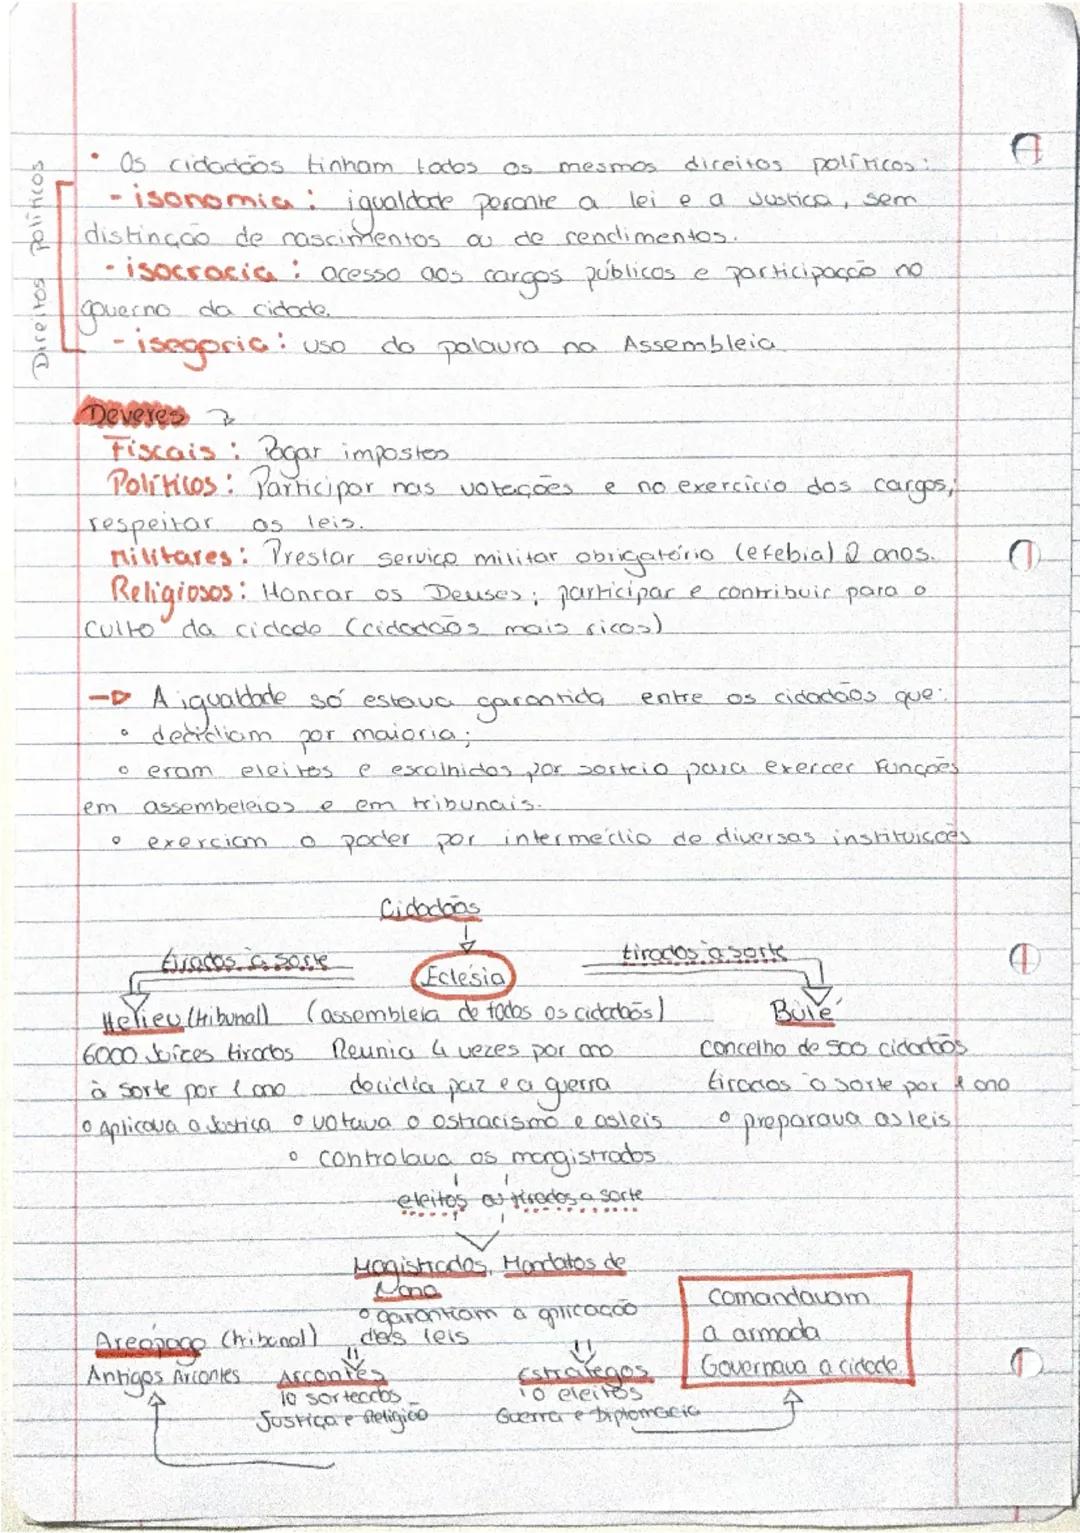 Direitos Políticos
• Os cidadãos tinham todos os mesmos direitos políticos:
- isonomia: igualdade perante a lei e a Justiça, sem
distinção de nascimentos ou de rendimentos.
- isocracia: acesso aos cargos públicos e participação no
governo da cidade.
- isegoria: uso da palavra na Assembleia
Deveres
Fiscais: Pagar impostos
Políticos: Participar nas votações e no exercício dos cargos,
respeitar as leis.
Militares: Prestar serviço militar obrigatório (efebia) 2 anos.
Religiosos: Honrar os Deuses; participar e contribuir para o
culto da cidade (cidadãos mais ricos)
→ A igualdade só estava garantida entre os cidadãos que:
° decidiam por maioria;
° eram eleitos e escolhidos por sorteio para exercer funções
em assembeleias e em tribunais.
° exerciam o poder por intermédio de diversas instituições
Cidadãos
tirados à sorte Eclésia tirados à sorte
Helieu (tribunal) (assembleia de todos os cidadãos) Bulé
6000 Juízes tirados Reunia 4 vezes por ano concelho de 500 cidadãos
à sorte por 1 ano decidia paz e a guerra tirados à sorte por 1 ano
° Aplicava a Justiça ° votava o ostracismo e as leis ° preparava as leis
° controlava os magistrados
eleitos ou tirados a sorte
Magistrados, Mandatos de
1 ano
° garantiam a aplicação
das leis
comandavam
a armada
Governava a cidade
Areópago (tribunal)
Antigos Arcontes
Arcontes
10 sorteados
Justiça e Religião
Estrategos
10 eleitos
Guerra e Diplomacia